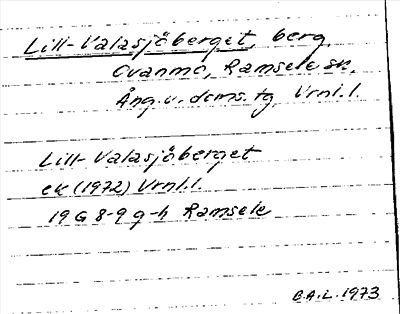 Lill-Valasjöberget, berg
Ovanmo, Ramsele sn,
Ång. v. doms. tg Vrnl. l.
Lill-Valasjöberget
ek (1972) Vrnl. l.
19 G 8-9 g-h Ramsele
B.A.L. 1973